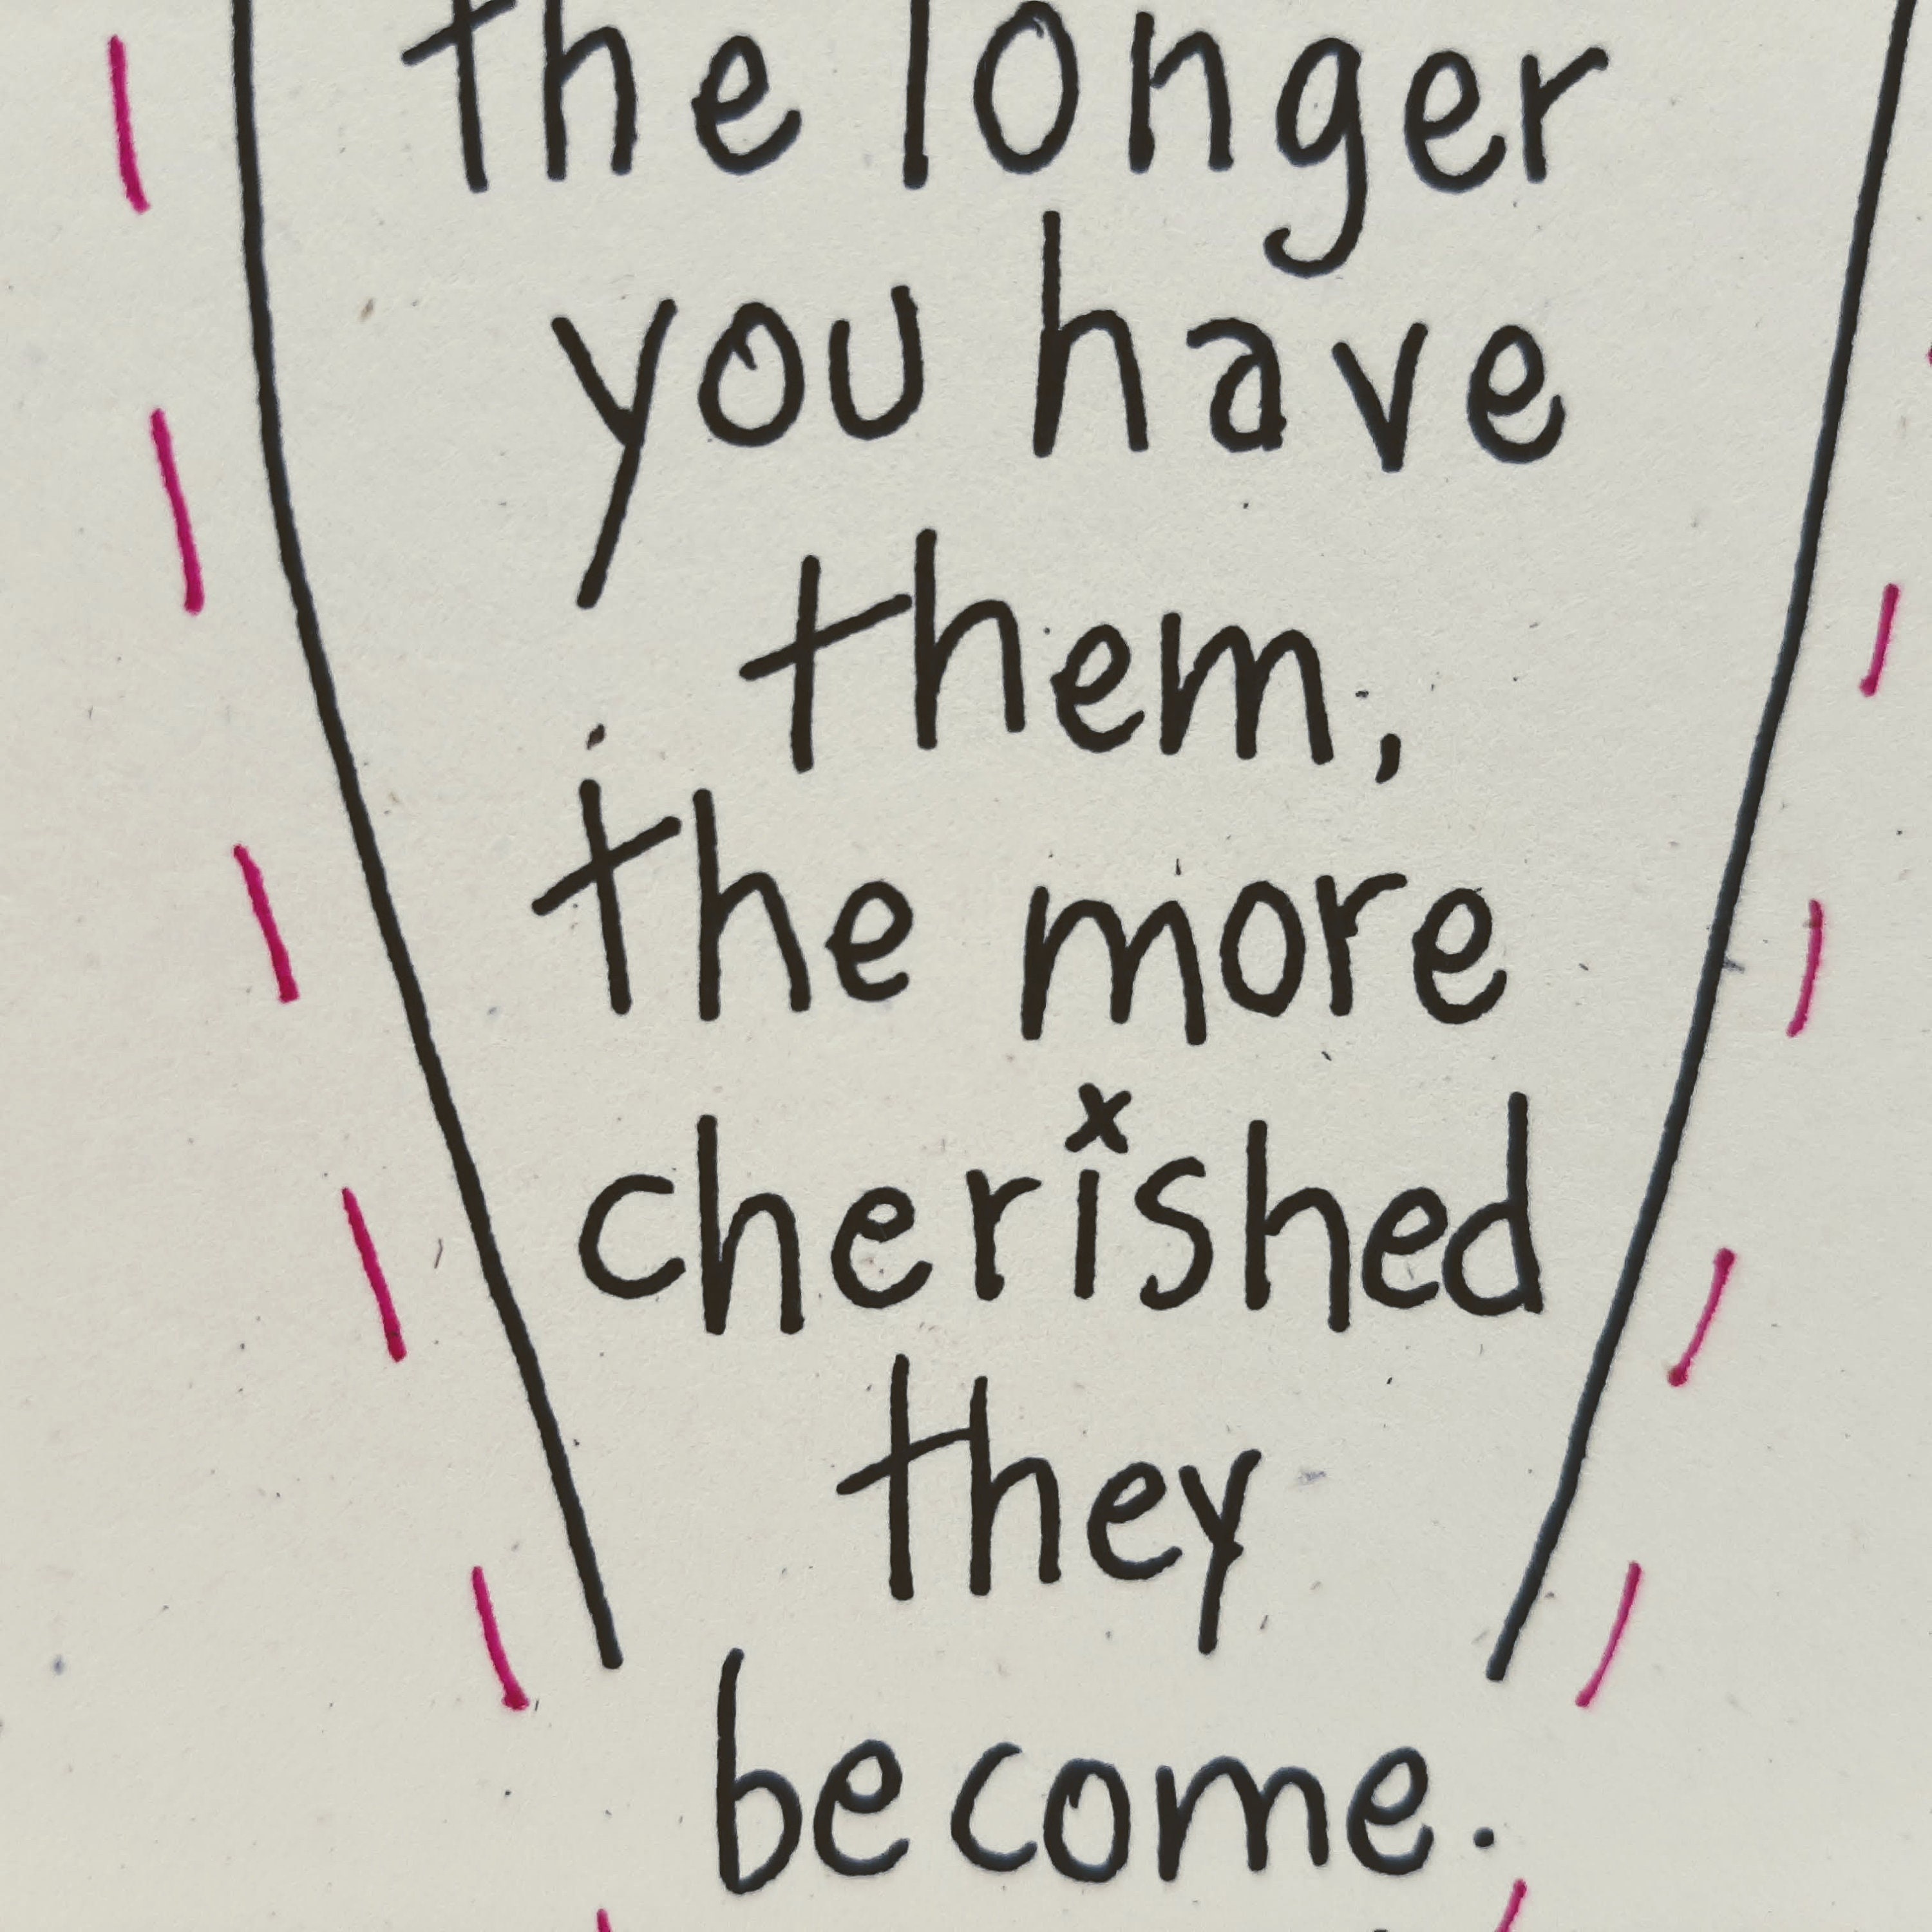 the longer
you have
them,
the more
cherished
they
become.